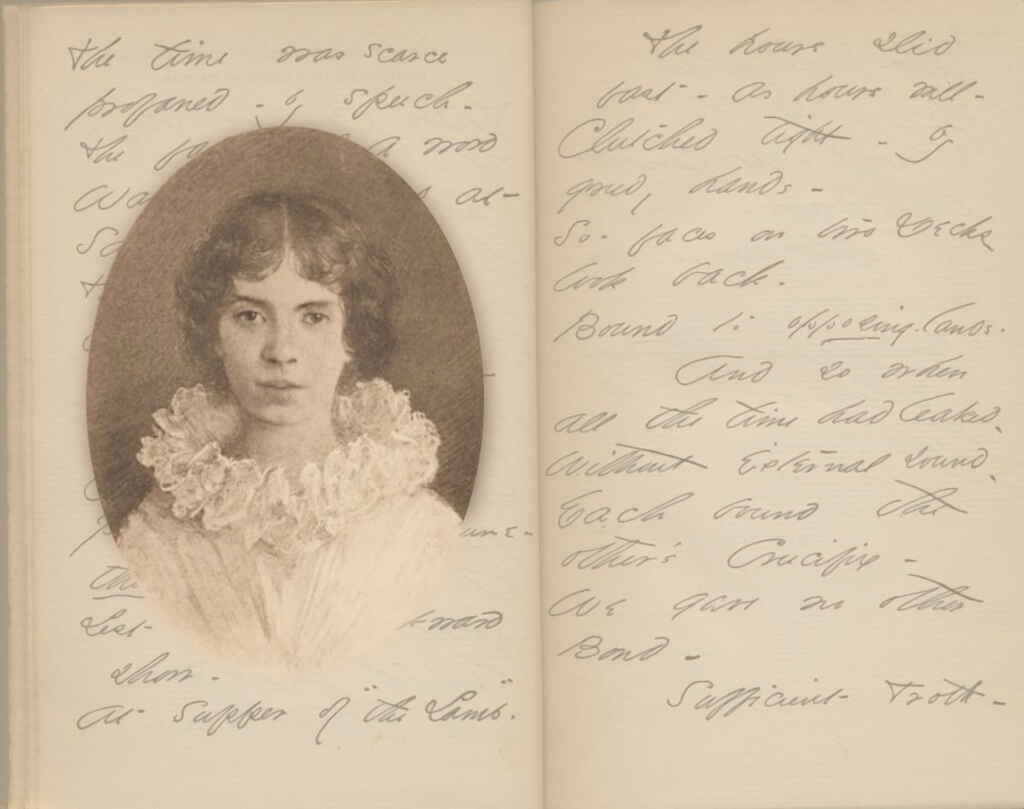 The time was scarce
profaned - by speech -
The a word
at -
the
Lest
show -
At Supper of "the Lamb".
The hours slid
fast - as hours will -
Clutched tight - by
greedy hands -
So - faces on two Decks
look back -
Bound to opposing lands.
And so when
all the time had leaked,
Without external sound,
Each bound the
other's Crucifix -
We gave no other
Bond -
Sufficient troth -